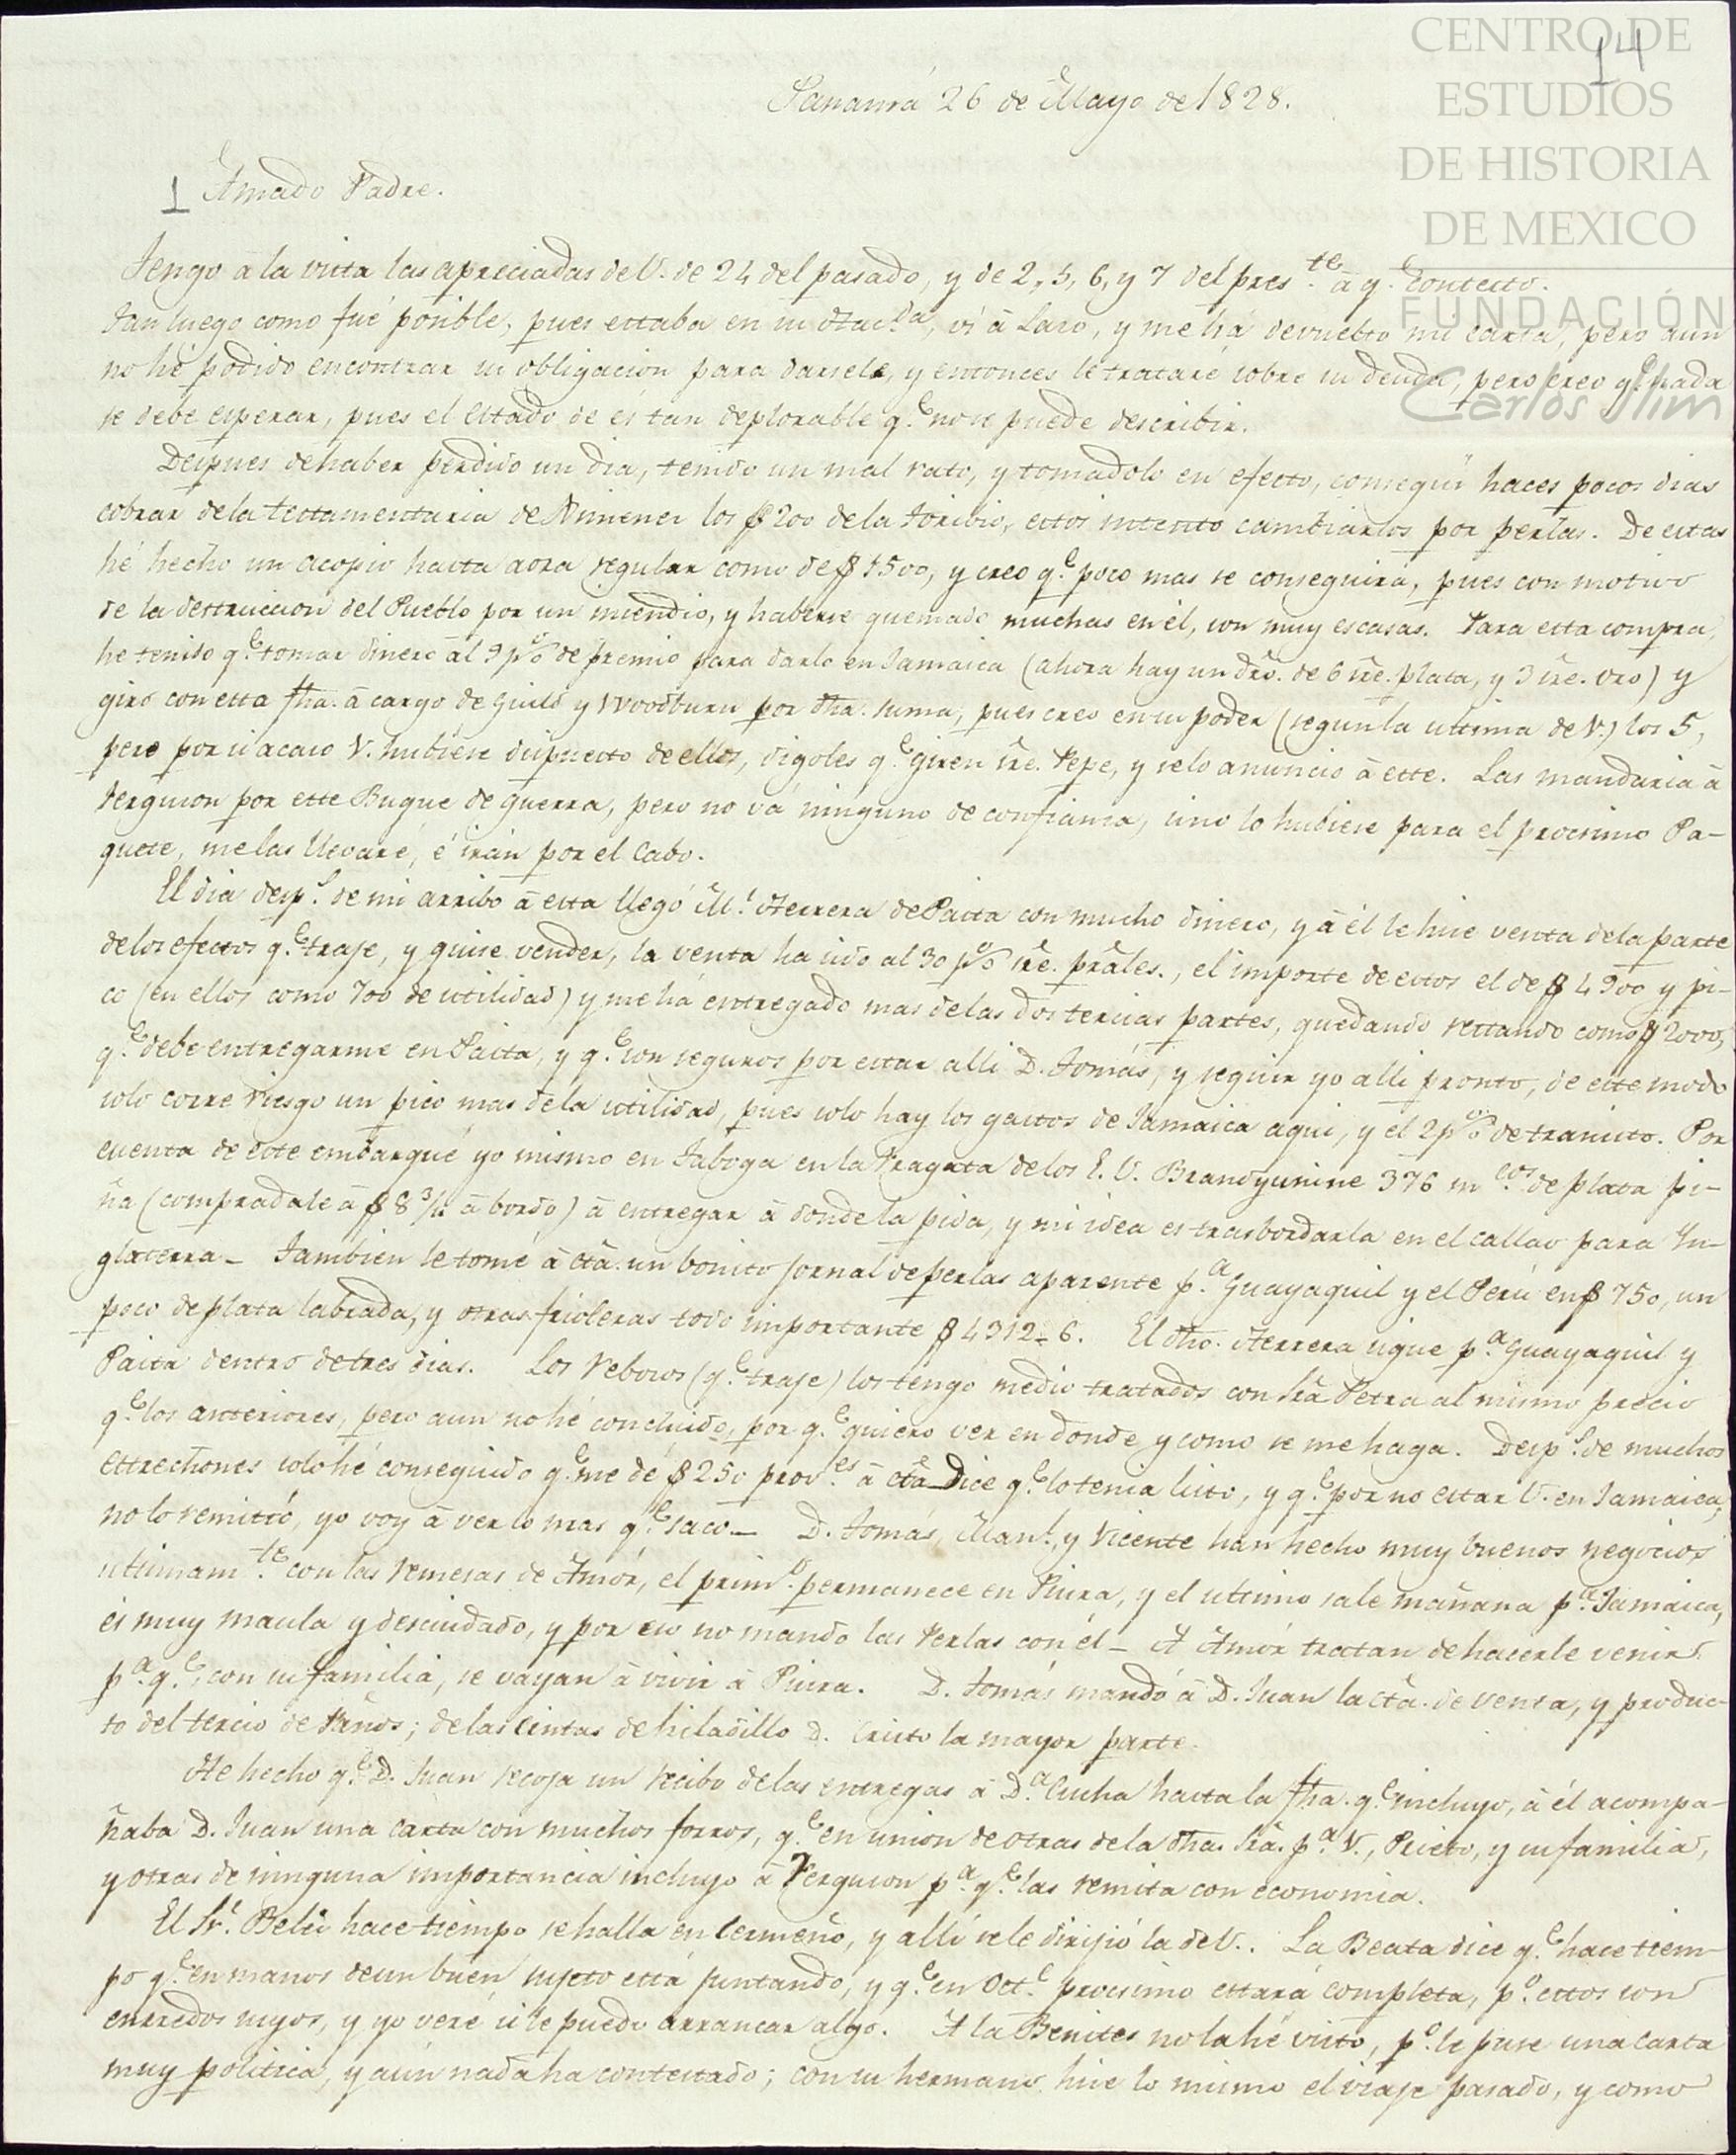 CENTRO DE
ESTUDIOS
DE HISTORIA
DE MEXICO
FUNDACIÓN
Carlos Slim
14
Panamá 26 de Mayo de 1828.
1 Amado Padre.
Tengo à la vista las apreciadas de V. de 24 del pasado, y de 2, 5, 6, y 7 del pres.te à q.e contesto.
Tan luego como fué posible, pues estaba en su Hac.da, ví à Laso, y me há devuelto mi carta, pero aun
no hé podido encontrar su obligacion para darsela, y entonces le trataré sobre su deuda, pero creo q.e nada
se debe esperar, pues el estado de es tan deplorable q.e no se puede describir.
Despues de haber perdido un dia, tenido un mal rato, y tomadolo en efecto, conseguí haces pocos dias
cobrar de la testamentaria de Ximenez los $ 200 de la Toribio, estos intento cambiarlos por perlas. De estas
hé hecho un acopio hasta aora regular como de $ 1500, y creo q.e poco mas se conseguira, pues con motivo
de la destruccion del Pueblo por un incendio, y haberse quemado muchas en él, son muy escasas. Para esta compra,
he tenido q.e tomar dinero al 9 p% de premio para darlo en Jamaica (ahora hay un dro. de 6 sre. plata, y 3 sre. oro) y
giro con esta fha. à cargo de Guild y Woodburn por dha. suma, pues creo en su poder (segun la ultima de V.) los 5,
pero por si acaso V. hubiese dispuesto de ellos, digoles q.e giren sre. Pepe, y se lo anuncio à este. Las mandaria à
Ferguson por este Buque de guerra, pero no vá ninguno de confianza, si no lo hubiese para el procsimo Pa-
quete, me las llevaré, é irán por el Cabo.
El dia desp.s de mi arribo à esta llegó M.l Herrera de Paita con mucho dinero, y à él le hice venta de la parte
de los efectos q.e traje, y quise vender, la venta ha sido al 30 p% sre. prales., el importe de estos el de $ 4900 y pi-
co (en ellos como 700 de utilidad) y me há entregado mas de las dos tercias partes, quedando restando como $ 2000,
q.e debe entregarme en Paita, y q.e son seguros por estar alli D. Tomás, y seguir yo alli pronto, de este modo
solo corre riesgo un pico mas de la utilidad, pues solo hay los gastos de Jamaica aqui, y el 2 p% de transito. Por
cuenta de este embarqué yo mismo en Taboga en la Fragata de los E. U. Brandywine 376 m.cos de plata pi-
ña (compradale à $ 8 3/4 à bordo) à entregar à donde la pida, y mi idea es trasbordarla en el callao para In-
glaterra_ Tambien le tomé à cta. un bonito jornal de perlas aparente p.a Guayaquil y el Perú en $ 750, un
poco de plata labrada, y otras frioleras todo importante $ 4312_6. El dho. Herrera sigue p.a Guayaquil y
Paita dentro de tres dias. Los rebosos (q.e traje) los tengo medio tratados con Sra Petra al mismo precio
q.e los anteriores, pero aun no hé concluido, por q.e quiero ver en donde y como se me haga. Desp.s de muchos
estrechones solo hé conseguido q.e me dé $ 250 prov.es à cta Dice q.e lo tenia listo, y q.e por no estar V. en Jamaica,
no lo remitió, yo voy à ver lo mas q.e saco_ D. Tomás, Man.l, y Vicente han hecho muy buenos negocios
ultimam.te con las remesas de Amór, el prim.o permanece en Piura, y el ultimo sale mañana p.a Jamaica,
es muy maula y descuidado, y por eso no mando las Perlas con él_ A Amór tratan de hacerle venir
p.a q.e, con su familia, se vayan à vivir à Piura. D. Tomás mandó à D. Juan la cta. de venta, y produc-
to del tercio de Paños; de las cintas de hiladillo D. Cristo la mayor parte.
He hecho q.e D. Juan recoja un recibo de las entregas à D.a Cucha hasta la fha. q.e incluyo, à él acompa-
ñaba D. Juan una carta con muchos forros, q.e en union de otras de la dha. Sra. p.a V., Prieto, y su familia,
y otras de ninguna importancia incluyo à Ferguson p.a q.e las remita con economia.
El Sr. Beliz hace tiempo se halla en Cermeño, y allí se le dirijió la de V.. La Beata dice q.e hace tiem-
po q.e en manos de un buen sujeto está juntando, y q.e en Oct.e procsimo estará completa, p.o estos son
enrredos suyos, y yo veré si le puedo arrancar algo. A la Benites no la hé visto, p.o le puse una carta
muy politica, y aún nada ha contestado; con su hermano hice lo mismo el viaje pasado, y como